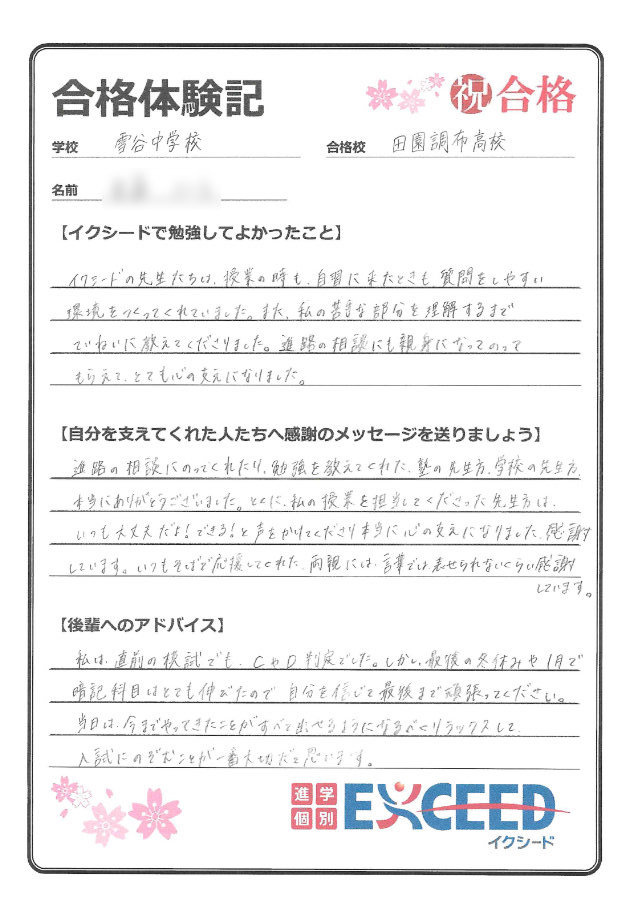 合格体験記
祝 合格
学校 雪谷中学校
合格校 田園調布高校
名前
【イクシードで勉強してよかったこと】
イクシードの先生たちは、授業の時も、自習に来たときも、質問をしやすい
環境をつくってくれていました。また、私の苦手な部分を理解するまで
ていねいに教えてくださりました。進路の相談にも親身になってのって
もらえて、とても心の支えになりました。
【自分を支えてくれた人たちへ感謝のメッセージを送りましょう】
進路の相談にのってくれたり、勉強を教えてくれた、塾の先生方、学校の先生方、
本当にありがとうございました。とくに、私の授業を担当してくださった先生方は、
いつも大丈夫だよ!できる!と声をかけてくださり本当に心の支えになりました、感謝
しています。いつもそばで応援してくれた、両親には、言葉では表せられないくらい感謝
しています。
【後輩へのアドバイス】
私は、直前の模試でも、CやD判定でした。しかし、最後の冬休みや1月で
暗記科目はとても伸びたので自分を信じて最後まで頑張ってください。
当日は、今までやってきたことがすべて出せるようになるべくリラックスして
入試にのぞむことが一番大切だと思います。
進学
個別
EXCEED
イクシード